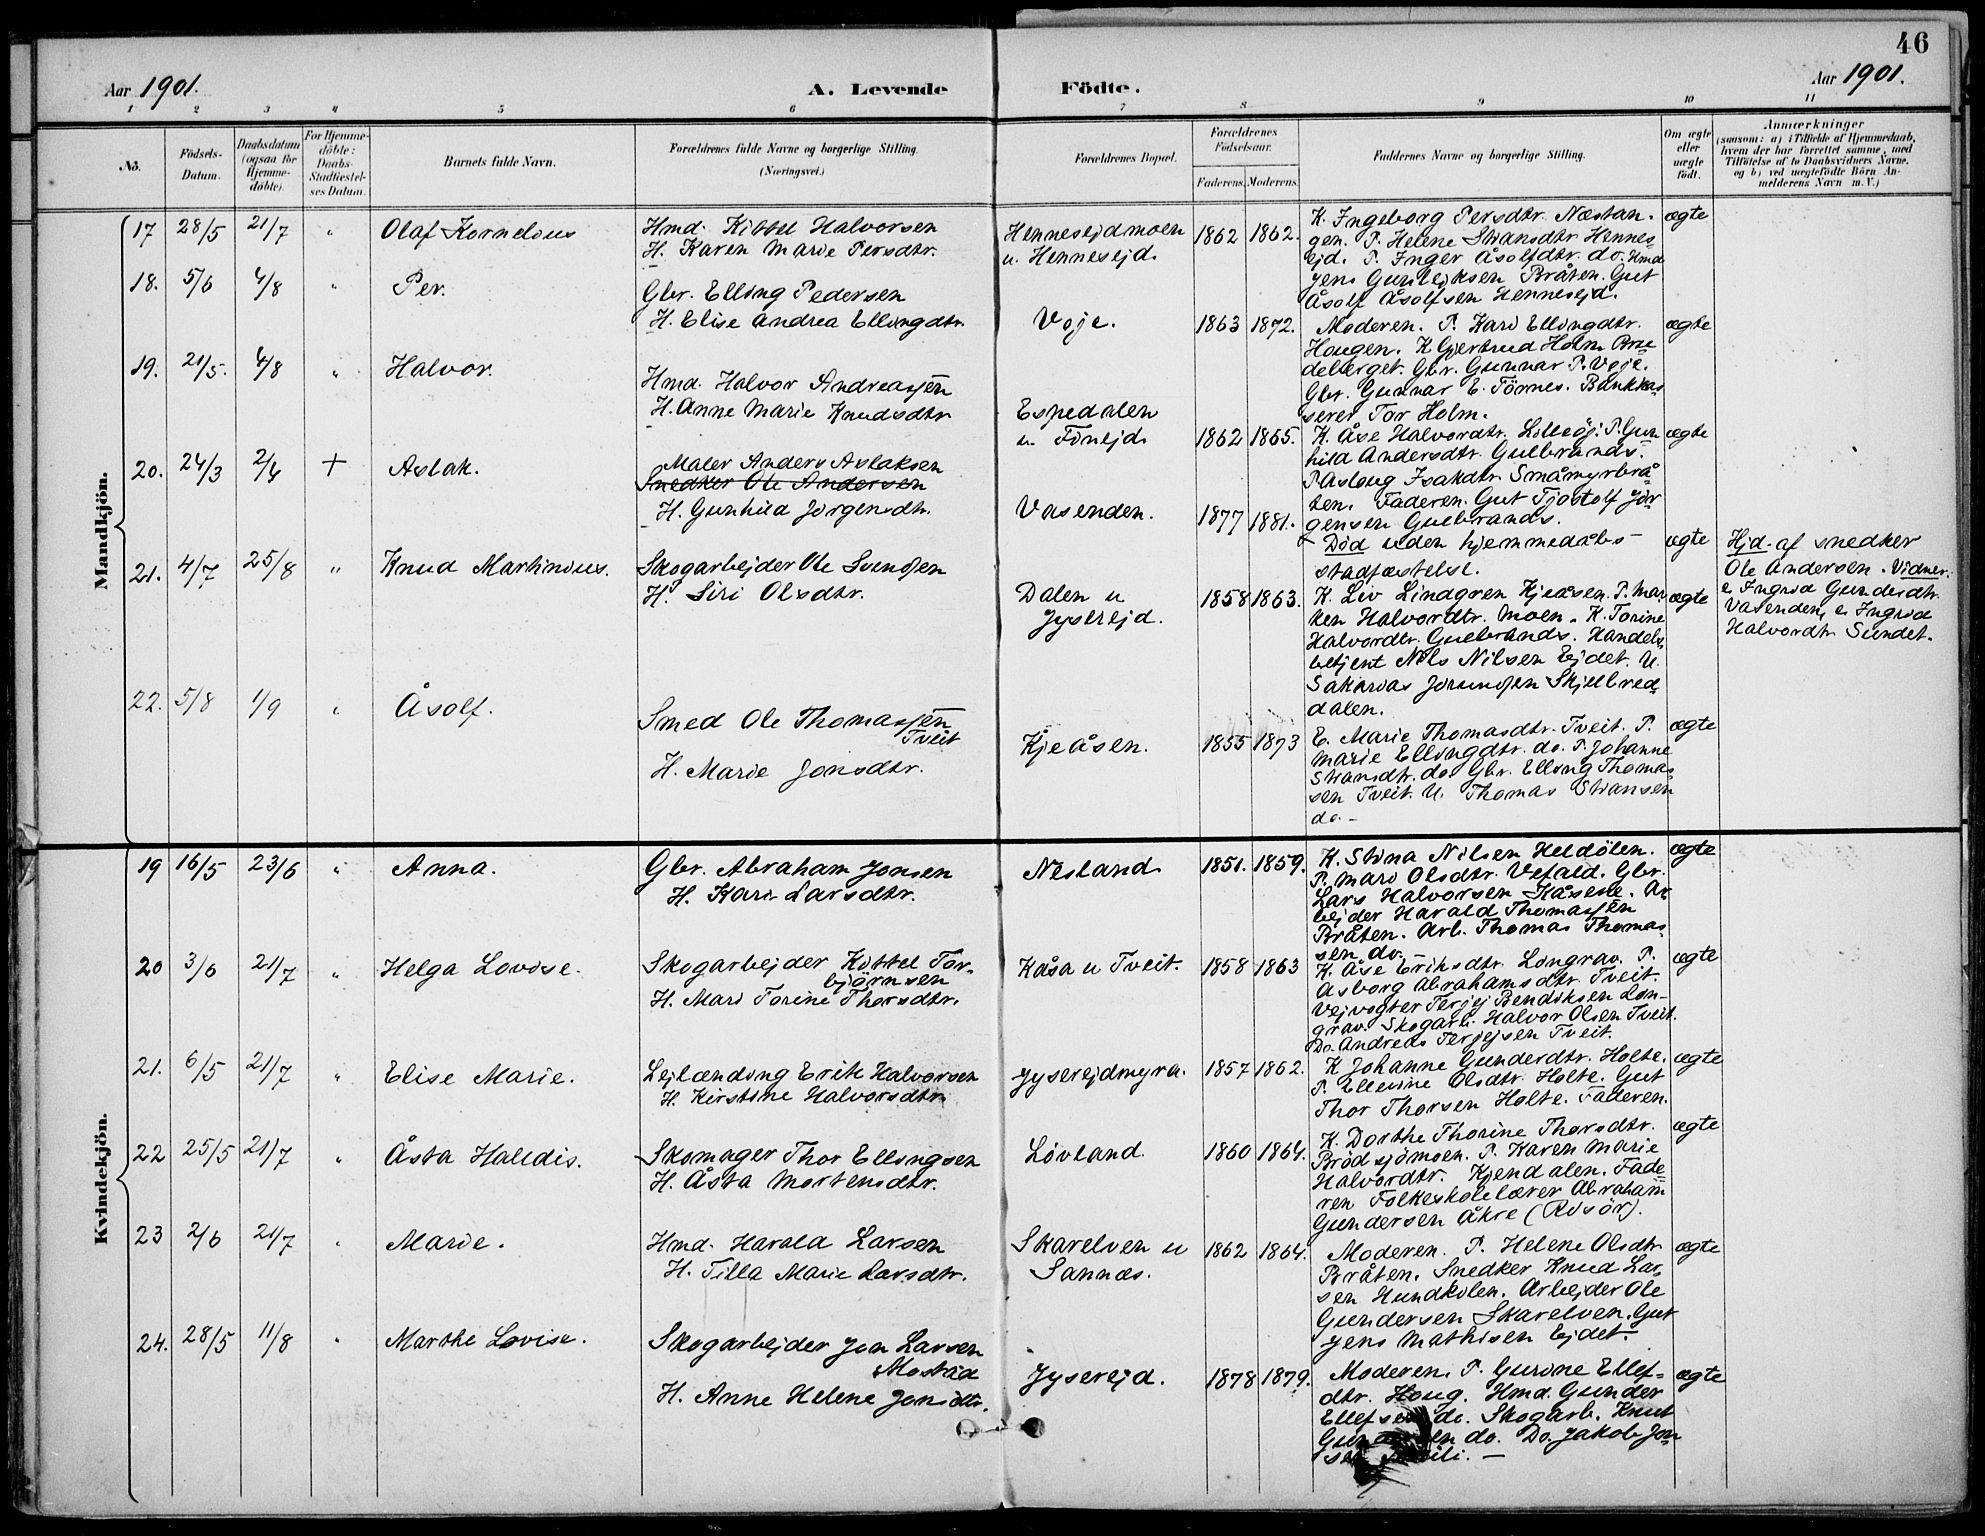 46
Aar 1901.
A. Levende Födte.
Aar 1901.
1 2 3 4 5 6 7 8 9 10 11
No.
Födsels-
Datum.
Daabsdatum
(ogsaa for
Hjemme-
döbte).
For Hjemme-
döbte:
Daabs-
Stadfæstel-
ses Datum.
Barnets fulde Navn.
Forældrenes fulde Navne og borgerlige Stilling.
(Næringsvei.)
Forældrenes Bopæl.
Forældrenes
Födselsaar.
Faderens. Moderens.
Faddernes Navne og borgerlige Stilling.
Om ægte
eller
uægte
födt.
Anmærkninger
(saasom: a) i Tilfælde af Hjemmedaab,
hvem der har forrettet samme, med
Tilföielse af to Daabsvidners Navne,
og b) ved uægtefödte Börn An-
melderens Navn m. V.)
Mandkjön.
17 28/5 21/7 " Olaf Kornelius
Hmd. Kittel Halvorsen
H. Karen Marie Persdtr.
Hennesejdmoen
u. Hennesejd.
1862 1862.
K. Ingeborg Persdtr. Næstan-
gen. P. Helene Stiansdtr Hennes-
ejd. P. Inger Åsolfdtr. do. Hmd
Jens Gunlejksen Bråten. Gut
Åsolf Åsolfsen Hennesejd.
ægte
18. 5/6 4/8 " Per.
Gbr. Elling Pedersen
H. Elise Andrea Ellingdtr.
Voje.
1863 1872.
Moderen. P. Kari Ellingdtr.
Haugen. K Gjertrud Holm Bru-
deberget. Gbr. Gunnar P. Voje.
Gbr. Gunnar E. Törnes. Bankkas-
serer Tor Holm.
ægte
19. 21/5. 4/8 " Halvor.
Hmd. Halvor Andreassen
H. Anne Marie Knudsdtr
Espedalen
u. Finejd.
1862 1865.
K. Åse Halvordtr. Lilleöj. P. Gun
hild Andersdtr. Gulbrands.
P Aslaug Isakdtr Småmyrbrå-
ten. Faderen. Gut Tjostolf Jör-
gensen Gulbrands.
ægte
20. 24/3 2/4 + Aslak.
Maler Anders Aslaksen
Snedker Ole Andersen
H. Gunhild Jörgensdtr.
Vasenden.
1877 1881.
Död uden hjemmedåbs-
stadfæstelse.
ægte
Hjd. af snedker
Ole Andersen. Vidner:
e. Ingrid Gunderdtr.
Vasenden, e. Ingrid
Halvordtr. Sundet.
21. 4/7 25/8 " Knud Martinius.
Skogarbejder Ole Svendsen
H. Siri Olsdtr.
Dalen u
Jyserejd.
1858 1863.
K. Liv Lindgren Kjeåsen. P. Mar-
ken Halvordtr. Moen. K. Torine
Halvordtr. Gulbrands. Handels-
betjent Nils Nilsen Ejdet. U.
Sakarias Jörundsen Skjelbred-
dalen.
ægte
22. 5/8 1/9 " Åsolf.
Smed Ole Thomassen
Tveit
H. Marie Jonsdtr.
Kjeåsen.
1855 1873
E. Marie Thomasdtr. Tveit. P.
Marie Ellingdtr. do. P. Johanne
Stiansdtr. do Gbr. Elling Thomas-
sen Tveit. U. Thomas Stiansen
do. -
ægte
Kvindekjön.
19 16/5 23/6 " Anna.
Gbr. Abraham Jonsen
H. Kari Larsdtr.
Nesland
1851. 1859.
K. Stina Nilsen Heldölen.
P. Mari Olsdtr. Vefald. Gbr.
Lars Halvorsen Kåsene. Ar-
bejder Harald Thomassen
Bråten. Arb. Thomas Thomas-
sen do.
ægte
20 3/6 21/7 " Helga Lovise.
Skogarbejder Kittel Tor-
björnsen
H. Mari Torine Thorsdtr.
Kåsa u Tveit.
1858 1863
K. Åse Eriksdtr. Longrav. P.
Asborg Abrahamsdtr. Tveit.
Vejvogter Terjej Bendiksen Lon-
grav. Skogarb. Halvor Olsen Tveit.
Do. Andreas Terjejsen Tveit.
ægte
21. 6/5 21/7 " Elise Marie.
Lejlænding Erik Halvorsen
H. Kirstine Halvorsdtr.
Jyserejdmyra.
1857 1862.
K Johanne Gunderdtr. Holte.
P. Ellevine Olsdtr. Holte. Gut
Thor Thorsen Holte. Faderen.
ægte
22 25/5 21/7 " Åsta Halldis.
Skomager Thor Ellingsen
H. Åsta Mortensdtr.
Lövland.
1860 1864.
K. Dorthe Thorine Thorsdtr.
Brödsjömoen. P. Karen Marie
Halvordtr. Kjendalen. Fade-
ren Folkeskolelærer Abraham
Gundersen Åkre (Risör).
ægte
23 2/6 21/7 " Marie.
Hmd. Harald Larsen
H. Tilla Marie Larsdtr.
Skarelven u
Sannes.
1862 1864.
Moderen. P. Helene Olsdtr
Bråten. Snedker Knud Lar-
sen Hundkilen. Arbejder Ole
Gundersen Skarelven. Gut
Jens Mathisen Ejdet.
ægte
24. 28/5 11/8 " Marthe Lovise.
Skogarbejder Jon Larsen
Mostad
H. Anne Helene Jonsdtr.
Jyserejd.
1878 1879.
Moderen. P. Gurine Ellef-
dtr. Haug. Hmd. Gunder
Ellefsen do. Skogarb. Knut
do. Do. Jakob Jon-
sen
ægte